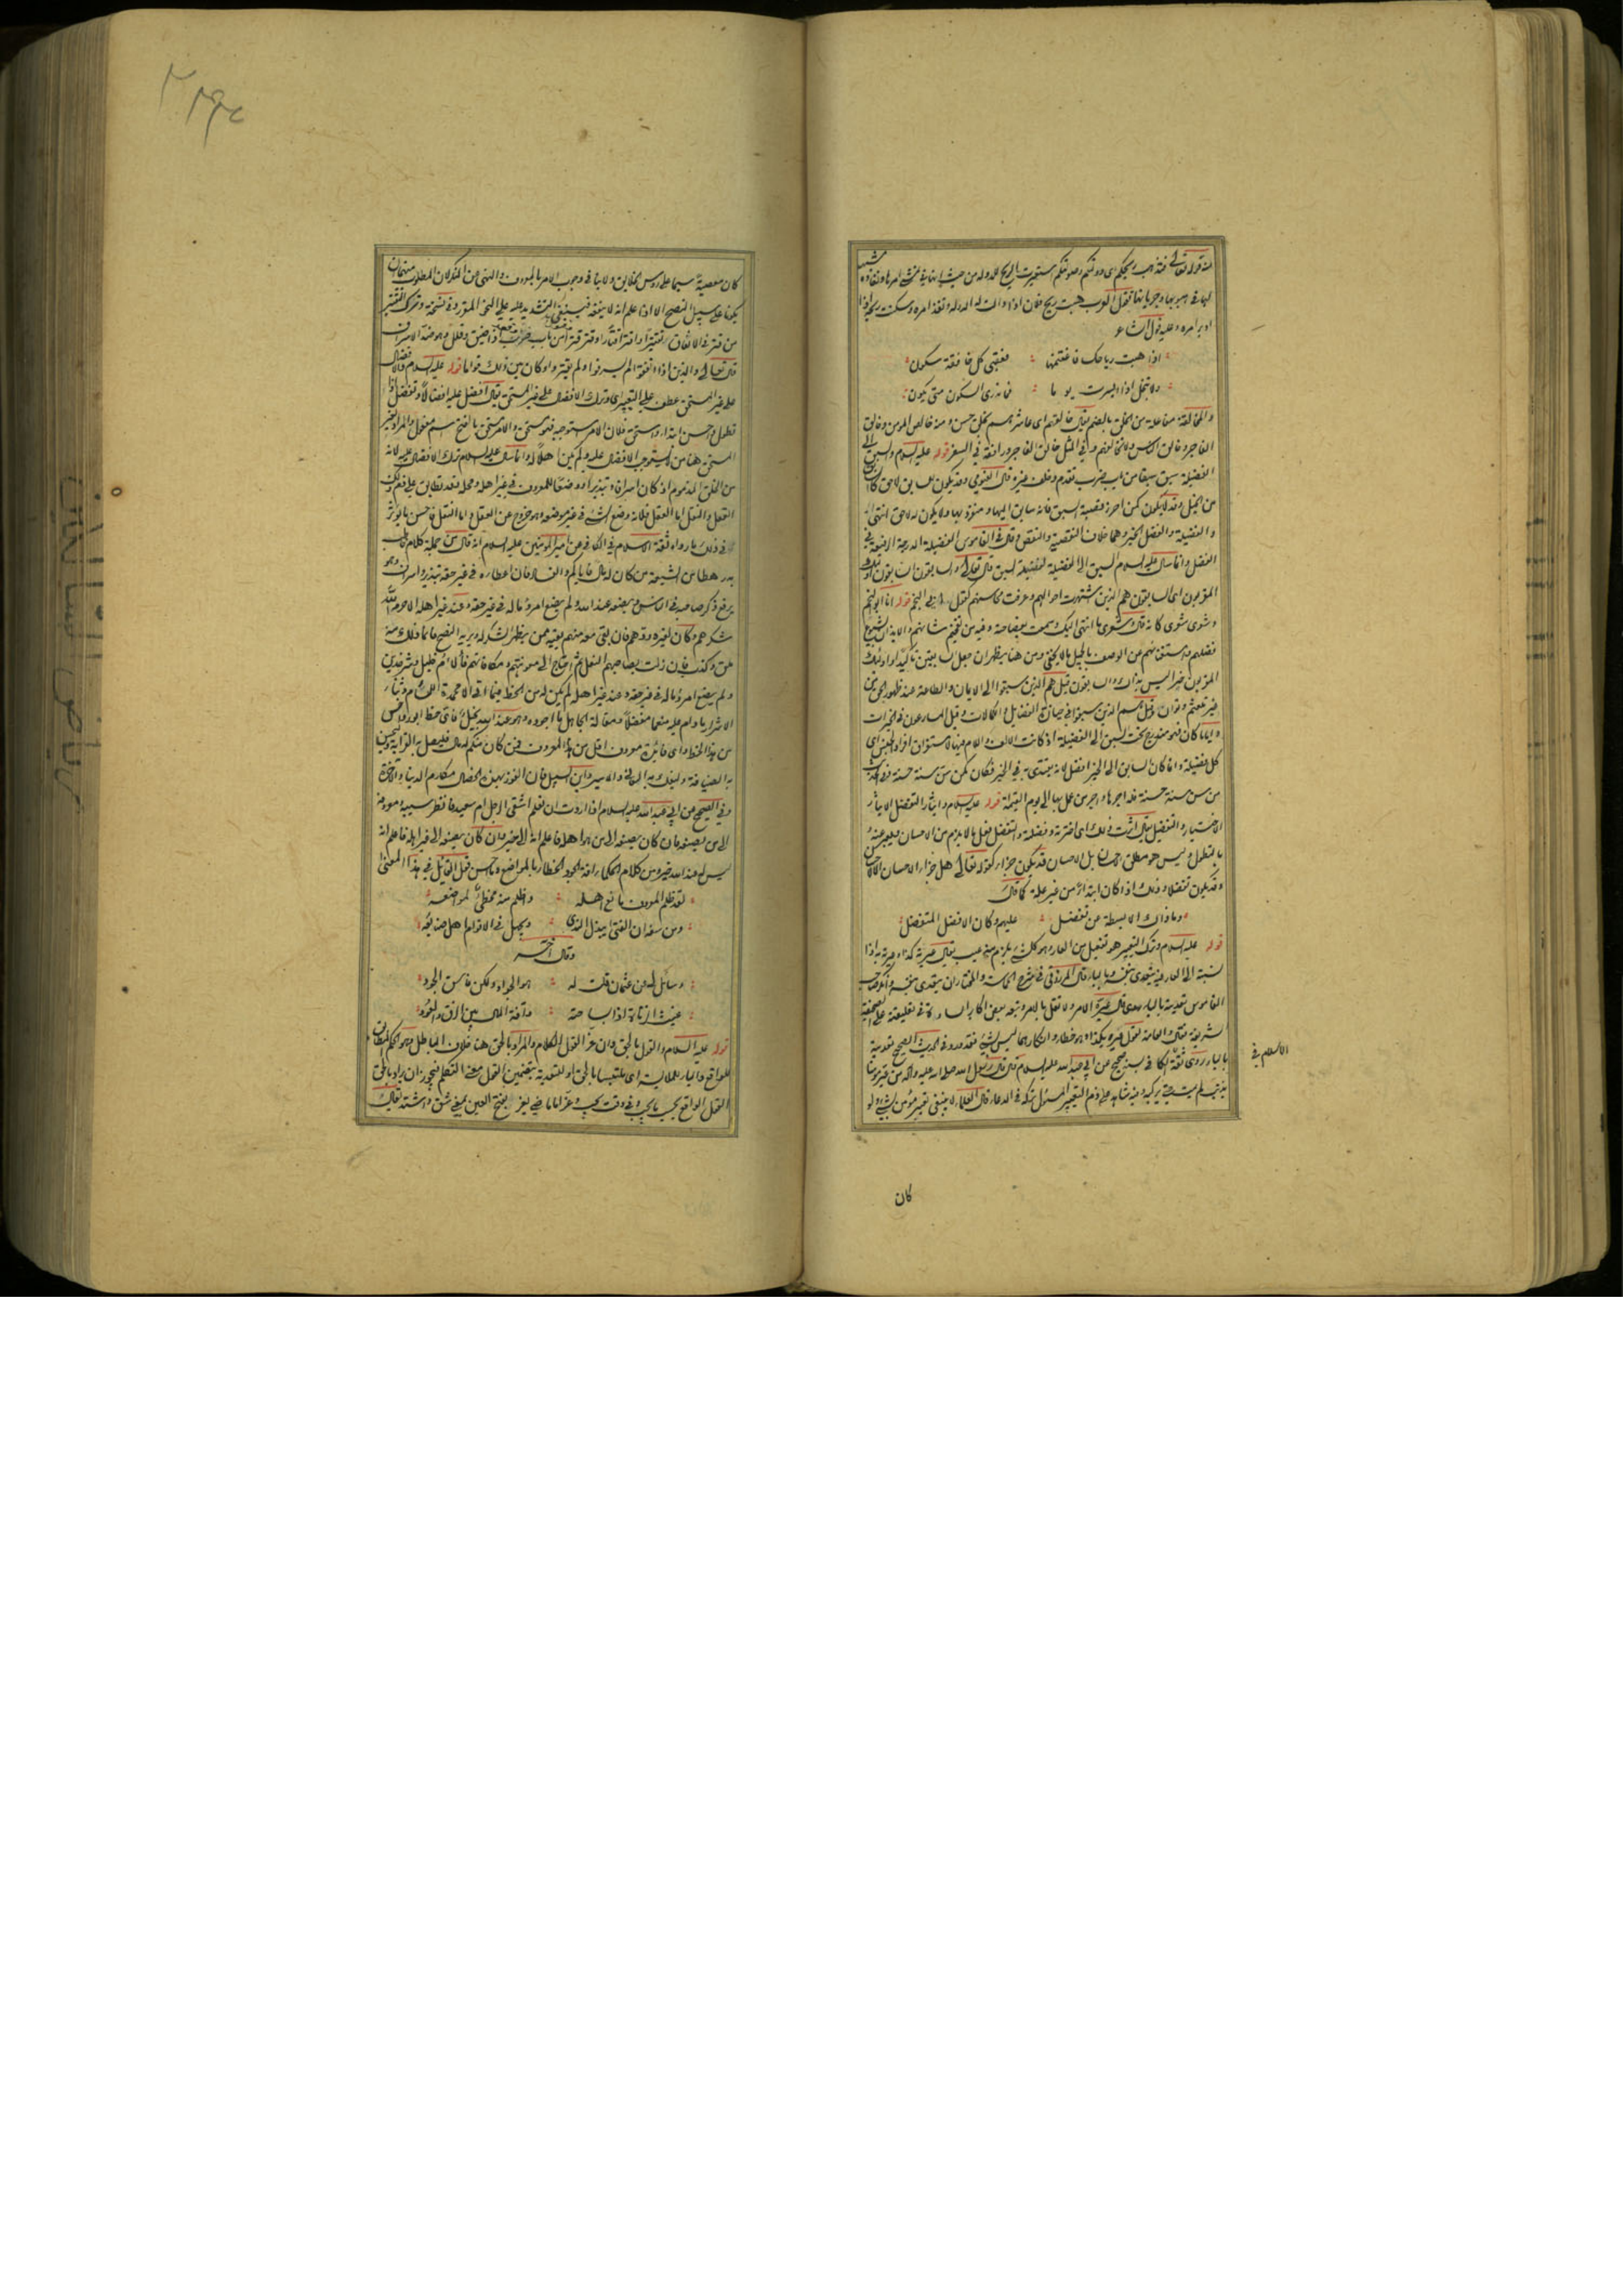 منه قوله تعالى فتذهب ريحكم اى دولتكم وصولتكم استعيرت الريح للدولة من حيث انها فى تمشى امرها ونفاذه مشبهة
لها فى هبوبها وجريانها تقول العرب هبت ريح فلان اذا دالت له الدولة ونفذ امره وسكنت ريحه اذا
ادبر امره وعليه قول الشاعر
اذا هبت رياحك فاغتنمها فعقبى كل خافقة سكون
ولا تبخل اذا ايسرت يوما فما تدرى السكون متى يكون
والمخالقة مفاعلة من الخلق بالضم يقال خالقهم اى عاشرهم بخلق حسن ومنه خالص المؤمن وخالق
الفاجر وخالق الناس ولا تخالفهم وفى المثل خالق الفاجر ورافقه فى السفر قوله عليه السلام والسبق الى
الفضيلة سبق سبقا من باب ضرب تقدم وخلف غيره قال الفيومى وقد يكون للسابق لاحق كالسابق
من الخيل وقد لا يكون كمن احرز قصبة السبق فانه سابق اليها ومنفرد بها ولا يكون له لاحق انتهى
والفضيلة والفضل الخير وهما خلاف النقيصة والنقص وقال فى القاموس الفضيلة الدرجة الرفيعة فى
الفضل وانما سأل عليه السلام السبق الى الفضيلة لفضيلة السبق قال تعالى والسابقون السابقون اولئك
المقربون اى السابقون هم الذين اشتهرت احوالهم وعرفت محاسنهم كقول ابى النجم قوله انا ابو النجم
وشعرى شعرى كانه قال وشعرى ما انتهى اليك وسمعت بفصاحته وفيه من تفخيم شانهم والايذان بشيوع
فضلهم واستغنائهم عن الوصف بالجميل ما لا يخفى ومن هنا يظهر ان جعل السابقين تأكيدا واولئك
المقربون خبرا ليس بذاك والسابقون قيل هم الذين سبقوا الى الايمان والطاعة عند ظهور الحق من
غير تلعثم وتوان وقيل هم الذين سبقوا فى حيازة الفضائل والكمالات وقيل المسارعون فى الخيرات
وايا ما كان فهو مندرج تحت السبق الى الفضيلة اذ كانت الالف واللام فيها لاستغراق افراد الجنس اى
كل فضيلة وانما كان السابق الى الخير افضل لانه يقتدى به فى الخير فكان كمن سن سنة حسنة وفى الحديث
من سن سنة حسنة فله اجرها واجر من عمل بها الى يوم القيمة قوله عليه السلام وايثار التفضل الايثار
الاختيار والتفضيل يقال اثرت ذلك اى اخترته وفضلته والتفضل فعل ما لا يلزم من الاحسان ويعبر عنه
بالتطول وليس هو مطلق الاحسان بل الاحسان قد يكون جزاء كقوله تعالى هل جزاء الاحسان الا الاحسان
وقد يكون تفضلا وذلك اذا كان ابتداء من غير علة كما قال
وما ذاك الا بسطة عن تفضل عليهم وكان الافضل المتفضل
قوله عليه السلام وترك التعيير هو تفعيل من العار وهو كل شئ يلزم منه عيب يقال عيرته كذا وعيرته به اذا
نسبته الى العار فيه يتعدى بنفسه وبالباء قال المرزوقى فى شرح الحماسة والمختار ان يتعدى بنفسه وانكر صاحب
القاموس تعديته بالباء وقال عيره الامر ولا تقل بالامر وتبعه بعض اكابر السادة فى تعليقته على الصحيفة
الشريفة فقال والعامة تقول عيره بكذا وهو خطأ وانكارهما ليس بشئ فقد ورد فى الحديث الصحيح تعديته
بالباء روى ثقة الاسلام فى الكافى بسند صحيح عن ابى عبد الله عليه السلام قال قال رسول الله صلى الله عليه وآله من عير مؤمنا
بذنب لم يمت حتى يركبه وفيه شاهد على ذم التعيير المسئول تركه فى الدعاء قال العلماء لا ينبغى تعيير مؤمن بشئ ولو
الاسلام فى
كان
كان معصية سيما على رؤس الخلايق ولا ينافى وجوب الامر بالمعروف والنهى عن المنكر لان المطلوب منهما ان
يكونا على سبيل النصح الا اذا علم انه لا ينفعه فينبغى التشديد عليه على النحو المقرر وفى نسخة وترك التقتير
من قتر فى الانفاق تقتيرا واقتر اقتارا وقتر قترا من باب ضرب اذا ضيق وقلل وهو ضد الاسراف
قال تعالى والذين اذا انفقوا لم يسرفوا ولم يقتروا وكان بين ذلك قواما قوله عليه السلام والافضال
على غير المستحق عطف على التعيير اى وترك الافضال على غير المستحق يقال افضل عليه افضالا وتفضل اذا
تطول واحسن ابتداء واستحق فلان الامر استوجبه فهو مستحق والامر مستحق بالفتح اسم مفعول والمراد بغير
المستحق هنا من لم يستوجب الافضال عليه ولم يكن اهلا له وانما سأل عليه السلام ترك الافضال عليه لانه
من الخلق المذموم اذ كان اسرافا وتبذيرا ووضعا للمعروف فى غير اهله ومحله وقد تطابق على ذم ذلك
العقل والنقل اما العقل فلانه وضع الشئ فى غير موضعه وهو خروج عن العدل واما النقل فاحسن ما يؤثر
فى ذلك ما رواه ثقة الاسلام فى الكافى عن امير المؤمنين عليه السلام انه قال من جملة كلام خاطب
به رهطا من الشيعة من كان له مال فاياكم والفساد فان اعطاءه فى غير حقه تبذير واسراف وهو
يرفع ذكر صاحبه فى الناس ويضعه عند الله ولم يضع امرؤ ماله فى غير حقه وعند غير اهله الا حرمه الله
شكرهم وكان لغيره ودهم فان بقى معه منهم بقية ممن يظهر الشكر له ويريه النصح فانما ذلك منه
ملق وكذب فان زلت بصاحبهم النعل ثم احتاج الى معونتهم ومكافاتهم فألأم خليل وشر خدين
ولم يضع امرؤ ماله فى غير حقه وعند غير اهله لم يكن له من الحظ فيما اتى الا محمدة اللئام وثناء
الاشرار ما دام عليه منعما مفضلا ومقالة الجاهل ما اجوده وهو عند الله بخيل فاى حظ ابور واخس
من هذا الحظ واى فائدة معروف اقل من هذا المعروف فمن كان منكم له مال فليصل به القرابة وليحسن
به الضيافة وليفك به العانى والاسير وابن السبيل فان الفوز بهذه الخصال مكارم الدنيا وشرف الاخرة
وفى الصحيح عن ابى عبد الله عليه السلام اذا اردت ان تعلم اشقى الرجل ام سعيد فانظر سيبه ومعروفه
الى من يصنعه فان كان يصنعه الى من هو اهله فاعلم انه الى خير وان كان يصنعه الى غير اهله فاعلم انه
ليس له عند الله خير ومن كلام الحكماء افة الجود الخطاء بالمواضع وما احسن قول القائل فى هذا المعنى
لقد ظلم المعروف مانع اهله واظلم منه مخطئ لمواضعه
ومن سفه ان الفتى يبذل الندى ويجهل فى الاقوام اهل صنايعه
وقال آخر
وسائل لى عن عثمان قلت له هو الجواد ولكن فاسد الجود
قوله عليه السلام والقول بالحق وان عز القول الكلام والمراد بالحق هنا خلاف الباطل وهو الحكم المطابق
للواقع والباء للملابسة اى ملتبسا بالحق او للتعدية بتضمين القول معنى التكلم فيجوز ان يراد بالحق
القول الواقع بحسب ما يجب وفى وقت يجب وعز اما ماضى يعز بفتح العين بمعنى شق واشتد يقال